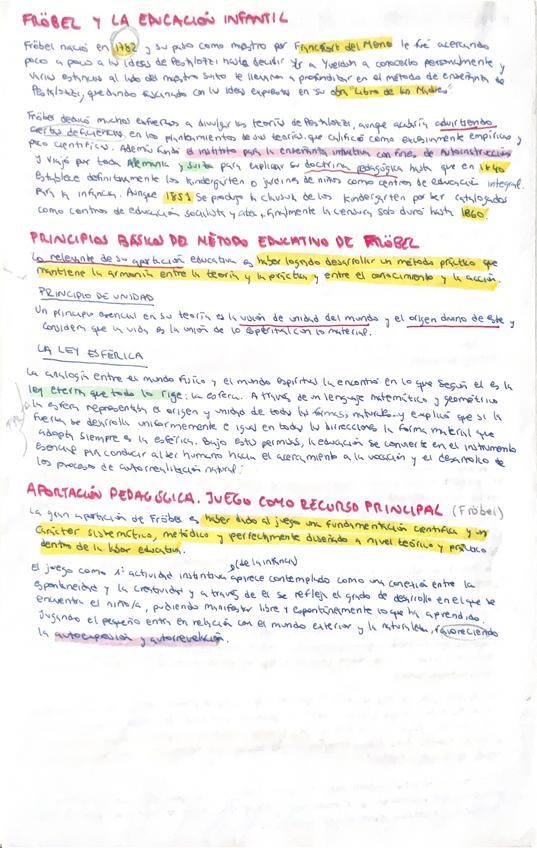 FRÖBEL Y LA EDUCACIÓN INFANTIL
Fröbel nació en 1782 y su paso como maestro por Francfort del Meno le fue acercando
poco a poco a las ideas de Pestalozzi hasta decidir ir a Yverdon a conocerlo personalmente y
varias estancias al lado del maestro suizo le llevaron a profundizar en el método de enseñanza de
Pestalozzi, quedando fascinado con las ideas expuestas en su obra "Libro de las Madres".
Fröbel dedicó muchos esfuerzos a divulgar las teorías de Pestalozzi, aunque acabaría advirtiendo
ciertas deficiencias en los planteamientos de sus teorías, que calificó como excesivamente empíricos y
poco científicos. Además fundó el instituto para la enseñanza intuitiva con fines de Autoinstrucción
y viajó por toda Alemania y Suiza para explicar su doctrina pedagógica hasta que en 1840
establece definitivamente los Kindergarten o jardines de niños como centros de educación integral
para la infancia. Aunque 1851 se produjo la clausura de los Kindergarten por ser catalogados
como centros de educación socialista y atea, finalmente la censura solo duró hasta 1860.
PRINCIPIOS BÁSICOS DEL MÉTODO EDUCATIVO DE FRÖBEL
Lo relevante de su aportación educativa es haber logrado desarrollar un método práctico que
mantiene la armonía entre la teoría y la práctica y entre el conocimiento y la acción.
PRINCIPIO DE UNIDAD
Un principio esencial en su teoría es la visión de unidad del mundo y el origen divino de este y
considera que la vida es la unión de lo espiritual con lo material.
LA LEY ESFÉRICA
La analogía entre el mundo físico y el mundo espiritual la encontró en lo que según él es la
ley eterna que todo lo rige: la esfera. A través de un lenguaje matemático y geométrico
la esfera representaba el origen y unidad de todas las formas naturales y explicó que si la
fuerza se desarrolla uniformemente e igual en todas las direcciones la forma material que
adopta siempre es la esférica. Bajo estas premisas, la educación se convierte en el instrumento
esencial para conducir al ser humano hacia el acercamiento a la vocación y el desarrollo de
los procesos de autorrealización natural.
APORTACIÓN PEDAGÓGICA. JUEGO COMO RECURSO PRINCIPAL (Fröbel)
La gran aportación de Fröbel es haber dado al juego una fundamentación científica y un
carácter sistemático, metódico y perfectamente diseñado a nivel teórico y práctico
dentro de la labor educativa.
(de la infancia)
El juego como 1ª actividad instintiva aparece contemplado como una conexión entre la
espontaneidad y la creatividad y a través de él se refleja el grado de desarrollo en el que se
encuentra el niño/a, pudiendo manifestar libre y espontáneamente lo que ha aprendido.
Jugando el pequeño entra en relación con el mundo exterior y la naturaleza, favoreciendo
la autoexpresión y autorrevelación.